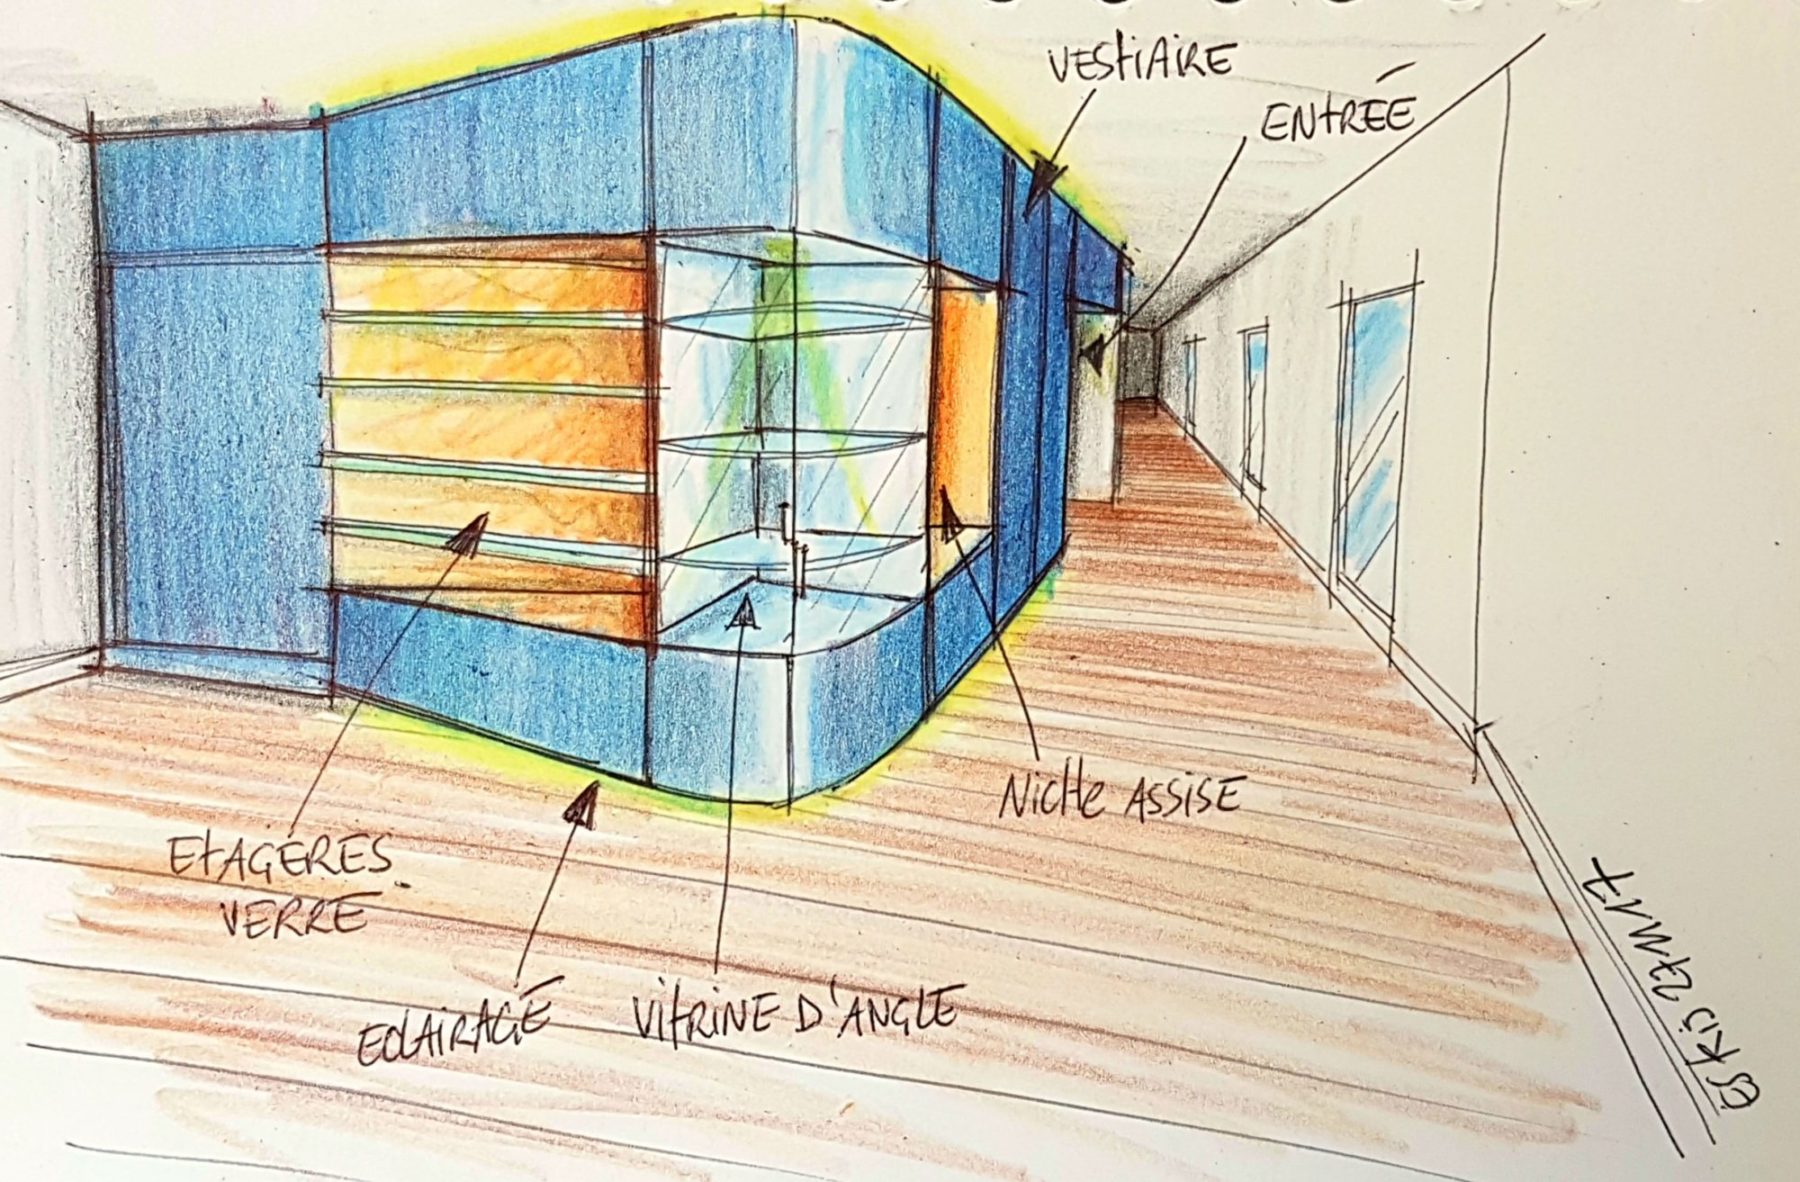 VESTIAIRE
ENTRÉE
NICHE ASSISE
ETAGÈRES
VERRE
ECLAIRAGE
VITRINE D'ANGLE
27M17